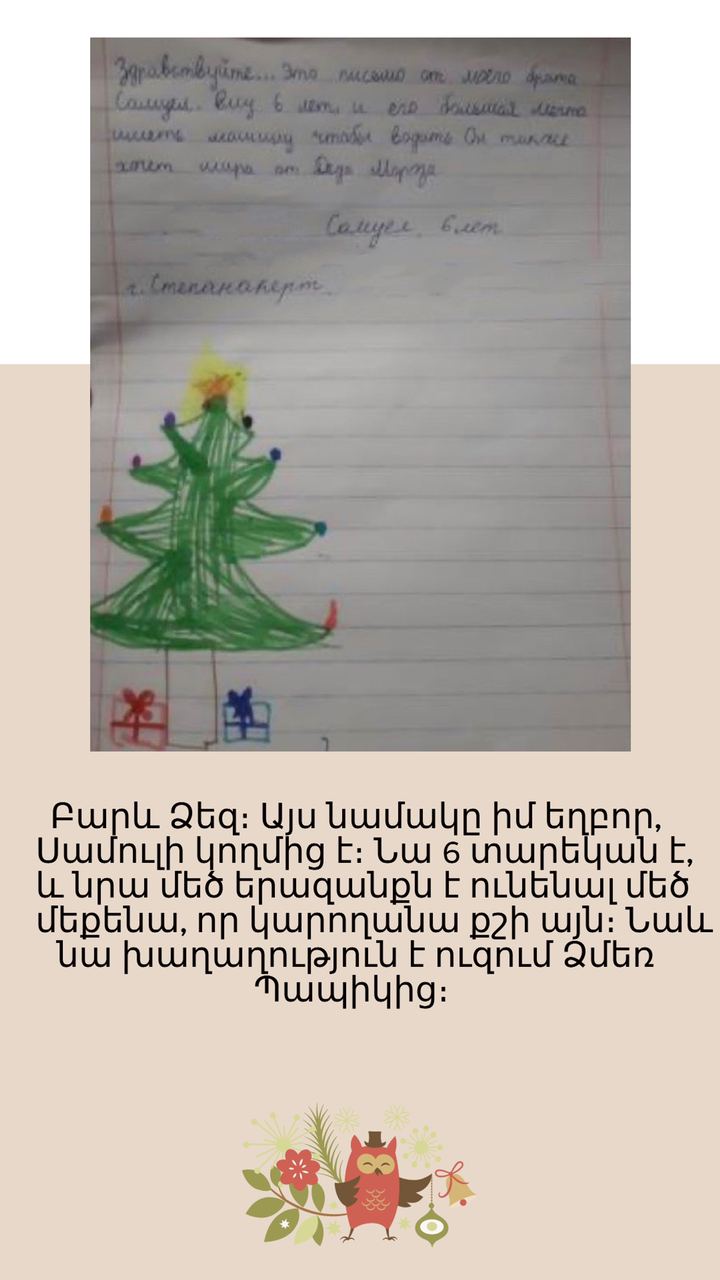 Здравствуйте... Это письмо от моего брата
Самуел. Ему 6 лет, и его большая мечта
иметь машину чтобы водить Он также
хочет мира от Деда Мороза
Самуел, 6 лет
г. Степанакерт
Բարև Ձեզ։ Այս նամակը իմ եղբոր,
Սամուլի կողմից է։ Նա 6 տարեկան է,
և նրա մեծ երազանքն է ունենալ մեծ
մեքենա, որ կարողանա քշի այն։ Նաև
նա խաղաղություն է ուզում Ձմեռ
Պապիկից։